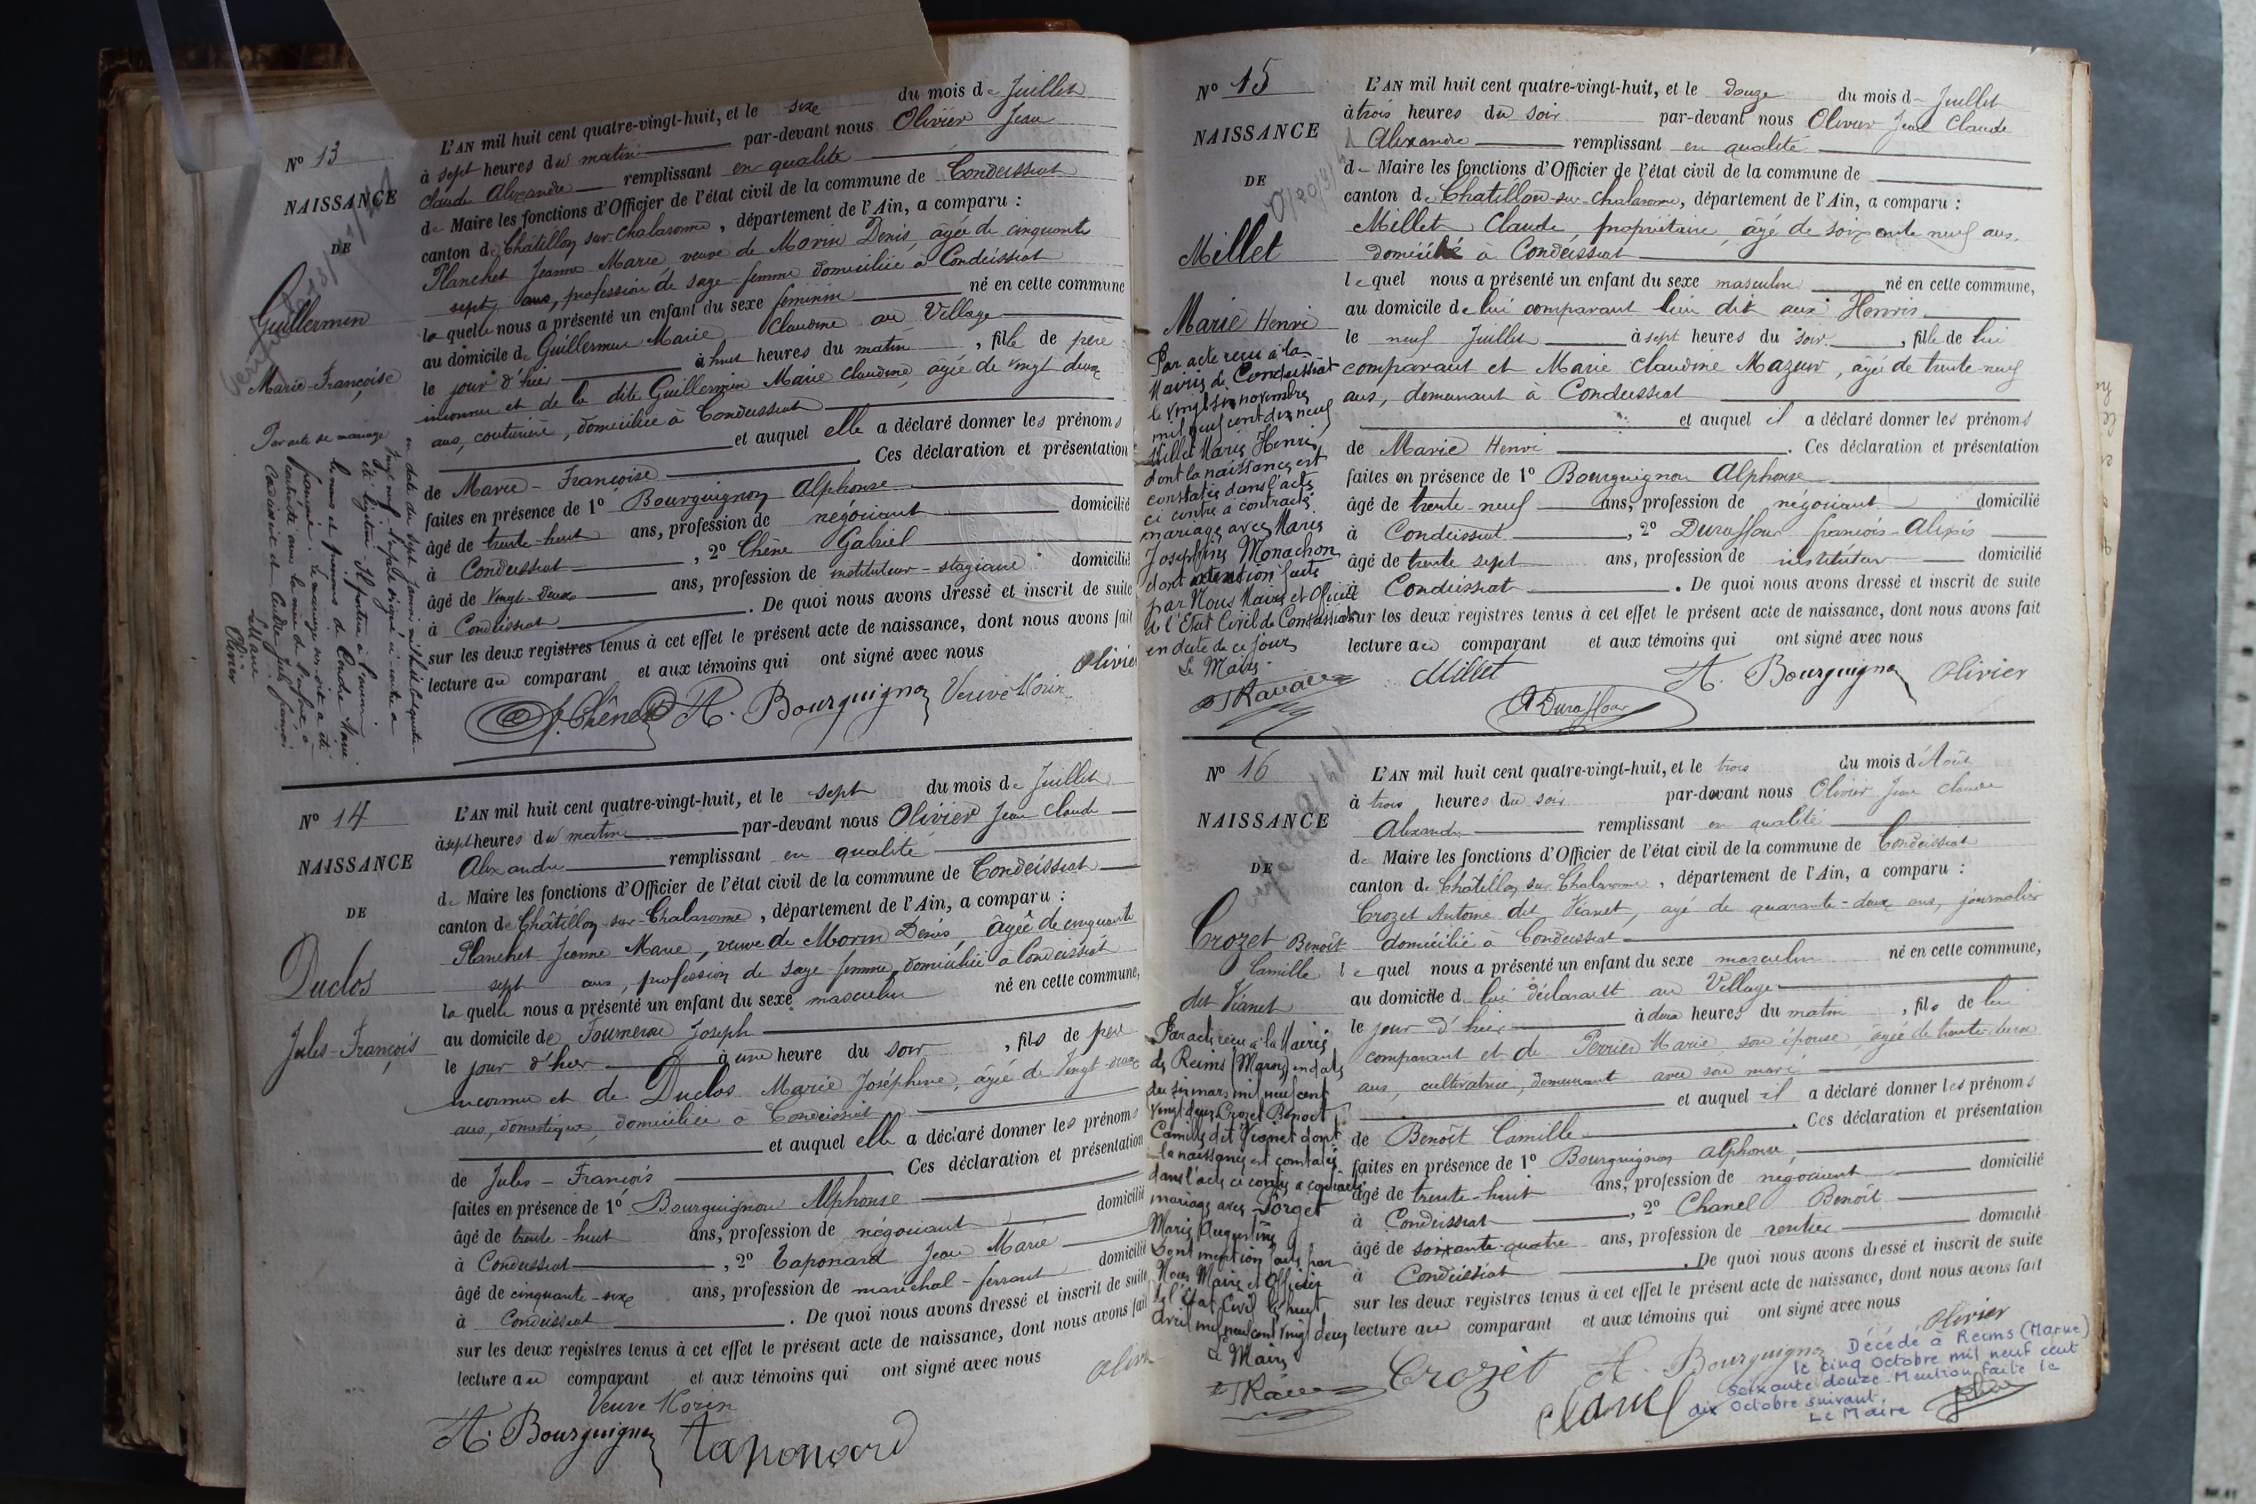 N° 13
NAISSANCE
DE
Guillermin
Marie-Françoise
Par acte de mariage
en date du sept janvier mil huit cent quatre-
vingt neuf
et légitimé. Il portera à l'avenir
le nom et prénoms de Cudre Marie
françoise. Le mariage sus-dit a été
contracté
Condeissiat et Cudre Jules françois
Le Maire
Olivier
L'AN mil huit cent quatre-vingt-huit, et le six du mois de Juillet
à sept heures du matin par-devant nous Olivier Jean
Claude Alexandre remplissant en qualité
de Maire les fonctions d'Officier de l'état civil de la commune de Condeissiat
canton de Châtillon sur Chalaronne, département de l'Ain, a comparu :
Planchet Jeanne Marie veuve de Morin Denis, âgée de cinquante
sept ans, profession de sage-femme domiciliée à Condeissiat
laquelle nous a présenté un enfant du sexe féminin né en cette commune
au domicile de Guillermin Marie Claudine au Village
le jour d'hier à huit heures du matin, fille de père
inconnu et de la dite Guillermin Marie Claudine, âgée de vingt deux
ans, couturière, domiciliée à Condeissiat
et auquel elle a déclaré donner les prénoms
de Marie-Françoise Ces déclaration et présentation
faites en présence de 1° Bourguignon Alphonse
âgé de trente-huit ans, profession de négociant domicilié
à Condeissiat, 2° Chêne Gabriel
âgé de Vingt-Deux ans, profession de instituteur-stagiaire domicilié
à Condeissiat. De quoi nous avons dressé et inscrit de suite
sur les deux registres tenus à cet effet le présent acte de naissance, dont nous avons fait
lecture au comparant et aux témoins qui ont signé avec nous
Olivier
G. Chêne A. Bourguignon Veuve Morin
N° 14
NAISSANCE
DE
Duclos
Jules-François
L'AN mil huit cent quatre-vingt-huit, et le sept du mois de Juillet
à sept heures du matin par-devant nous Olivier Jean Claude
Alexandre remplissant en qualité
de Maire les fonctions d'Officier de l'état civil de la commune de Condeissiat
canton de Châtillon-sur-Chalaronne, département de l'Ain, a comparu :
Planchet Jeanne Marie, veuve de Morin Denis, âgée de cinquante
sept ans, profession de sage-femme, domiciliée à Condeissiat
laquelle nous a présenté un enfant du sexe masculin né en cette commune,
au domicile de Fournerae Joseph
le jour d'hier à une heure du soir, fils de père
inconnu et de Duclos Marie Joséphine, âgée de Vingt-deux
ans, domestique, domiciliée à Condeissiat
et auquel elle a déclaré donner les prénoms
de Jules-François Ces déclaration et présentation
faites en présence de 1° Bourguignon Alphonse
âgé de trente-huit ans, profession de négociant domicilié
à Condeissiat, 2° Taponard Jean Marie
âgé de cinquante-six ans, profession de maréchal-ferrant domicilié
à Condeissiat. De quoi nous avons dressé et inscrit de suite
sur les deux registres tenus à cet effet le présent acte de naissance, dont nous avons fait
lecture au comparant et aux témoins qui ont signé avec nous
Olivier
Veuve Morin
A. Bourguignon taponard
N° 15
NAISSANCE
DE
Millet
Marie Henri
Par acte reçu à la
Mairie de Condeissiat
le vingt six novembre
mil neuf cent dix neuf
Millet Marie Henri
dont la naissance est
constatée dans l'acte
ci contre a contracté
mariage avec Marie
Joséphine Monachon
dont mention faite
par Nous Maire et Officier
de l'Etat Civil de Condeissiat
en date de ce jour
Le Maire
L'AN mil huit cent quatre-vingt-huit, et le douze du mois de Juillet
à trois heures du soir par-devant nous Olivier Jean Claude
Alexandre remplissant en qualité
de Maire les fonctions d'Officier de l'état civil de la commune de
canton de Châtillon-sur-Chalaronne, département de l'Ain, a comparu :
Millet Claude, propriétaire, âgé de soixante neuf ans,
domicilié à Condeissiat
lequel nous a présenté un enfant du sexe masculin né en cette commune,
au domicile de lui comparant lieu dit aux Henris
le neuf Juillet à sept heures du soir, fils de lui
comparant et Marie Claudine Mazuir, âgée de trente-neuf
ans, demeurant à Condeissiat
et auquel il a déclaré donner les prénoms
de Marie Henri. Ces déclaration et présentation
faites en présence de 1° Bourguignon Alphonse
âgé de trente-neuf ans, profession de négociant domicilié
à Condeissiat, 2° Duraffour françois-Alexis
âgé de trente sept ans, profession de instituteur domicilié
à Condeissiat. De quoi nous avons dressé et inscrit de suite
sur les deux registres tenus à cet effet le présent acte de naissance, dont nous avons fait
lecture au comparant et aux témoins qui ont signé avec nous
Millet A. Bourguignon Olivier
A Duraffour
N° 16
NAISSANCE
DE
Crozet Benoît
Camille
dit Vianet
Par acte reçu à la Mairie
de Reims (Marne) en date
du six mars mil neuf cent
vingt deux Crozet Benoit
Camille dit Vianet dont
la naissance est constatée
dans l'acte ci contre a contracté
mariage avec Forget
Marie Augustine
Dont mention faite par
Nous Maire et Officier
de l'Etat Civil le huit
Avril mil neuf cent vingt deux
Le Maire
L'AN mil huit cent quatre-vingt-huit, et le trois du mois d'Août
à trois heures du soir par-devant nous Olivier Jean Claude
Alexandre remplissant en qualité
de Maire les fonctions d'Officier de l'état civil de la commune de Condeissiat
canton de Châtillon sur Chalaronne, département de l'Ain, a comparu :
Crozet Antoine dit Vianet, âgé de quarante-deux ans, journalier
domicilié à Condeissiat
lequel nous a présenté un enfant du sexe masculin né en cette commune,
au domicile de lui déclarant au Village
le jour d'hier à deux heures du matin, fils de lui
comparant et de Perrier Marie son épouse âgée de trente-deux
ans, cultivatrice, demeurant avec son mari
et auquel il a déclaré donner les prénoms
de Benoît Camille. Ces déclaration et présentation
faites en présence de 1° Bourguignon Alphonse,
âgé de trente-huit ans, profession de négociant domicilié
à Condeissiat, 2° Chanel Benoît
âgé de soixante-quatre ans, profession de rentier domicilié
à Condeissiat. De quoi nous avons dressé et inscrit de suite
sur les deux registres tenus à cet effet le présent acte de naissance, dont nous avons fait
lecture au comparant et aux témoins qui ont signé avec nous
Olivier
Crozet A. Bourguignon
Chanel
Décédé à Reims (Marne)
le cinq Octobre mil neuf cent
soixante douze. Mention faite le
dix Octobre suivant.
Le Maire